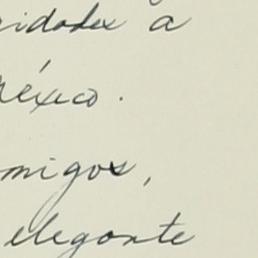 ridades a
México.
migos,
elegante